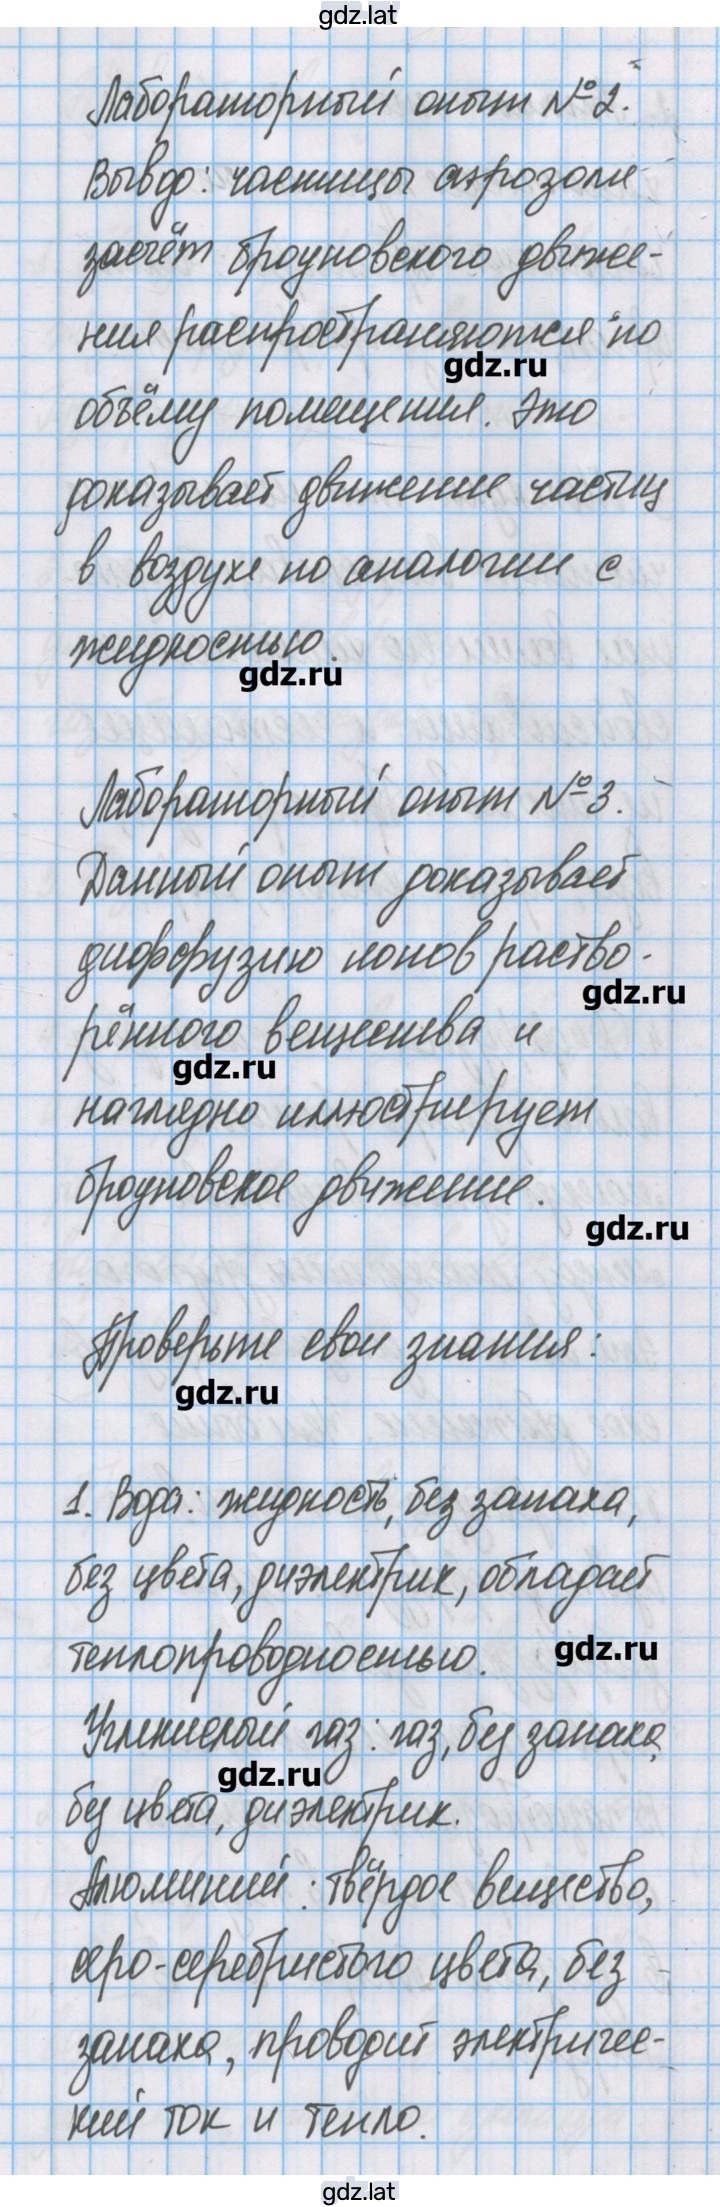 gdz.lat
Лабораторный опыт №2.
Вывод: частицы аэрозоля
засчёт броуновского движе-
ния распространяются по
gdz.ru
объёму помещения. Это
доказывает движение частиц
в воздухе по аналогии с
жидкостью.
gdz.ru
Лабораторный опыт №3.
Данный опыт доказывает
диффузию ионов раство-
gdz.ru
рённого вещества и
gdz.ru
наглядно иллюстрирует
броуновское движение.
gdz.ru
Проверьте свои знания:
gdz.ru
1. Вода: жидкость, без запаха,
без цвета, диэлектрик, обладает
теплопроводностью.
gdz.ru
Углекислый газ: газ, без запаха,
gdz.ru
без цвета, диэлектрик.
Алюминий: твёрдое вещество,
серо-серебристого цвета, без
запаха, проводит электричес-
кий ток и тепло.
gdz.lat